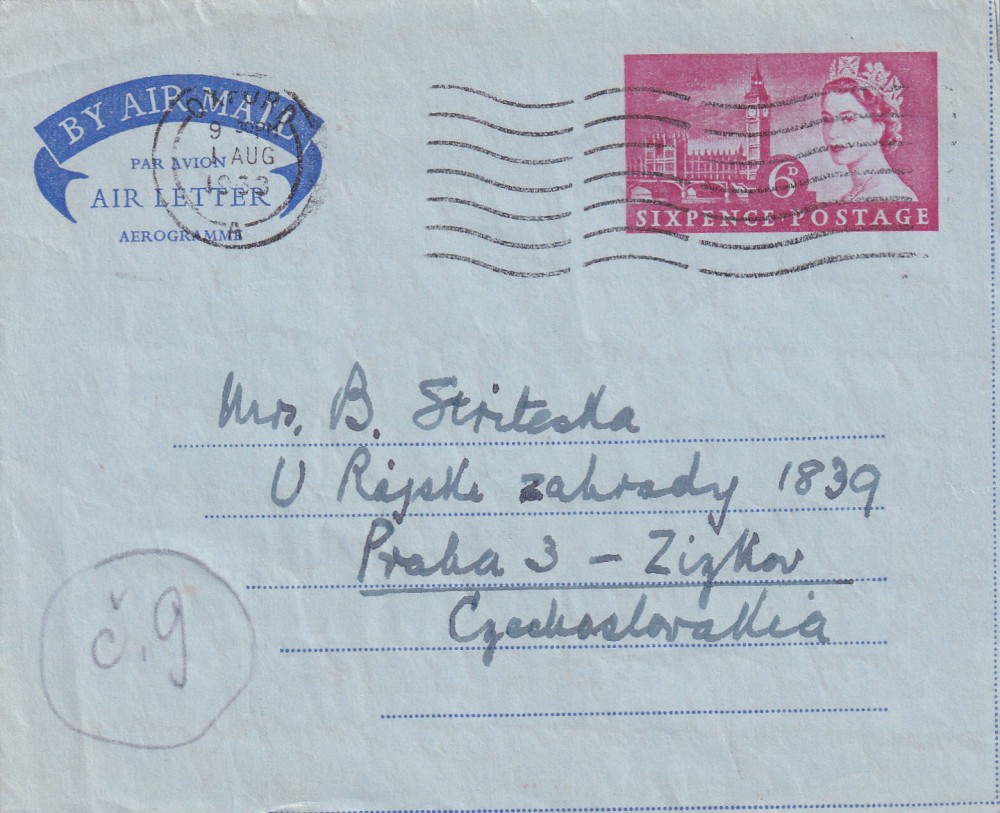 BY AIR MAIL
PAR AVION
AIR LETTER
AEROGRAMME
OXFORD
9
1 AUG
A
6D
SIXPENCE POSTAGE
Mrs. B. Striteska
U Rajske zahrady 1839
Praha 3 - Zizkov
Czechoslovakia
č. 9